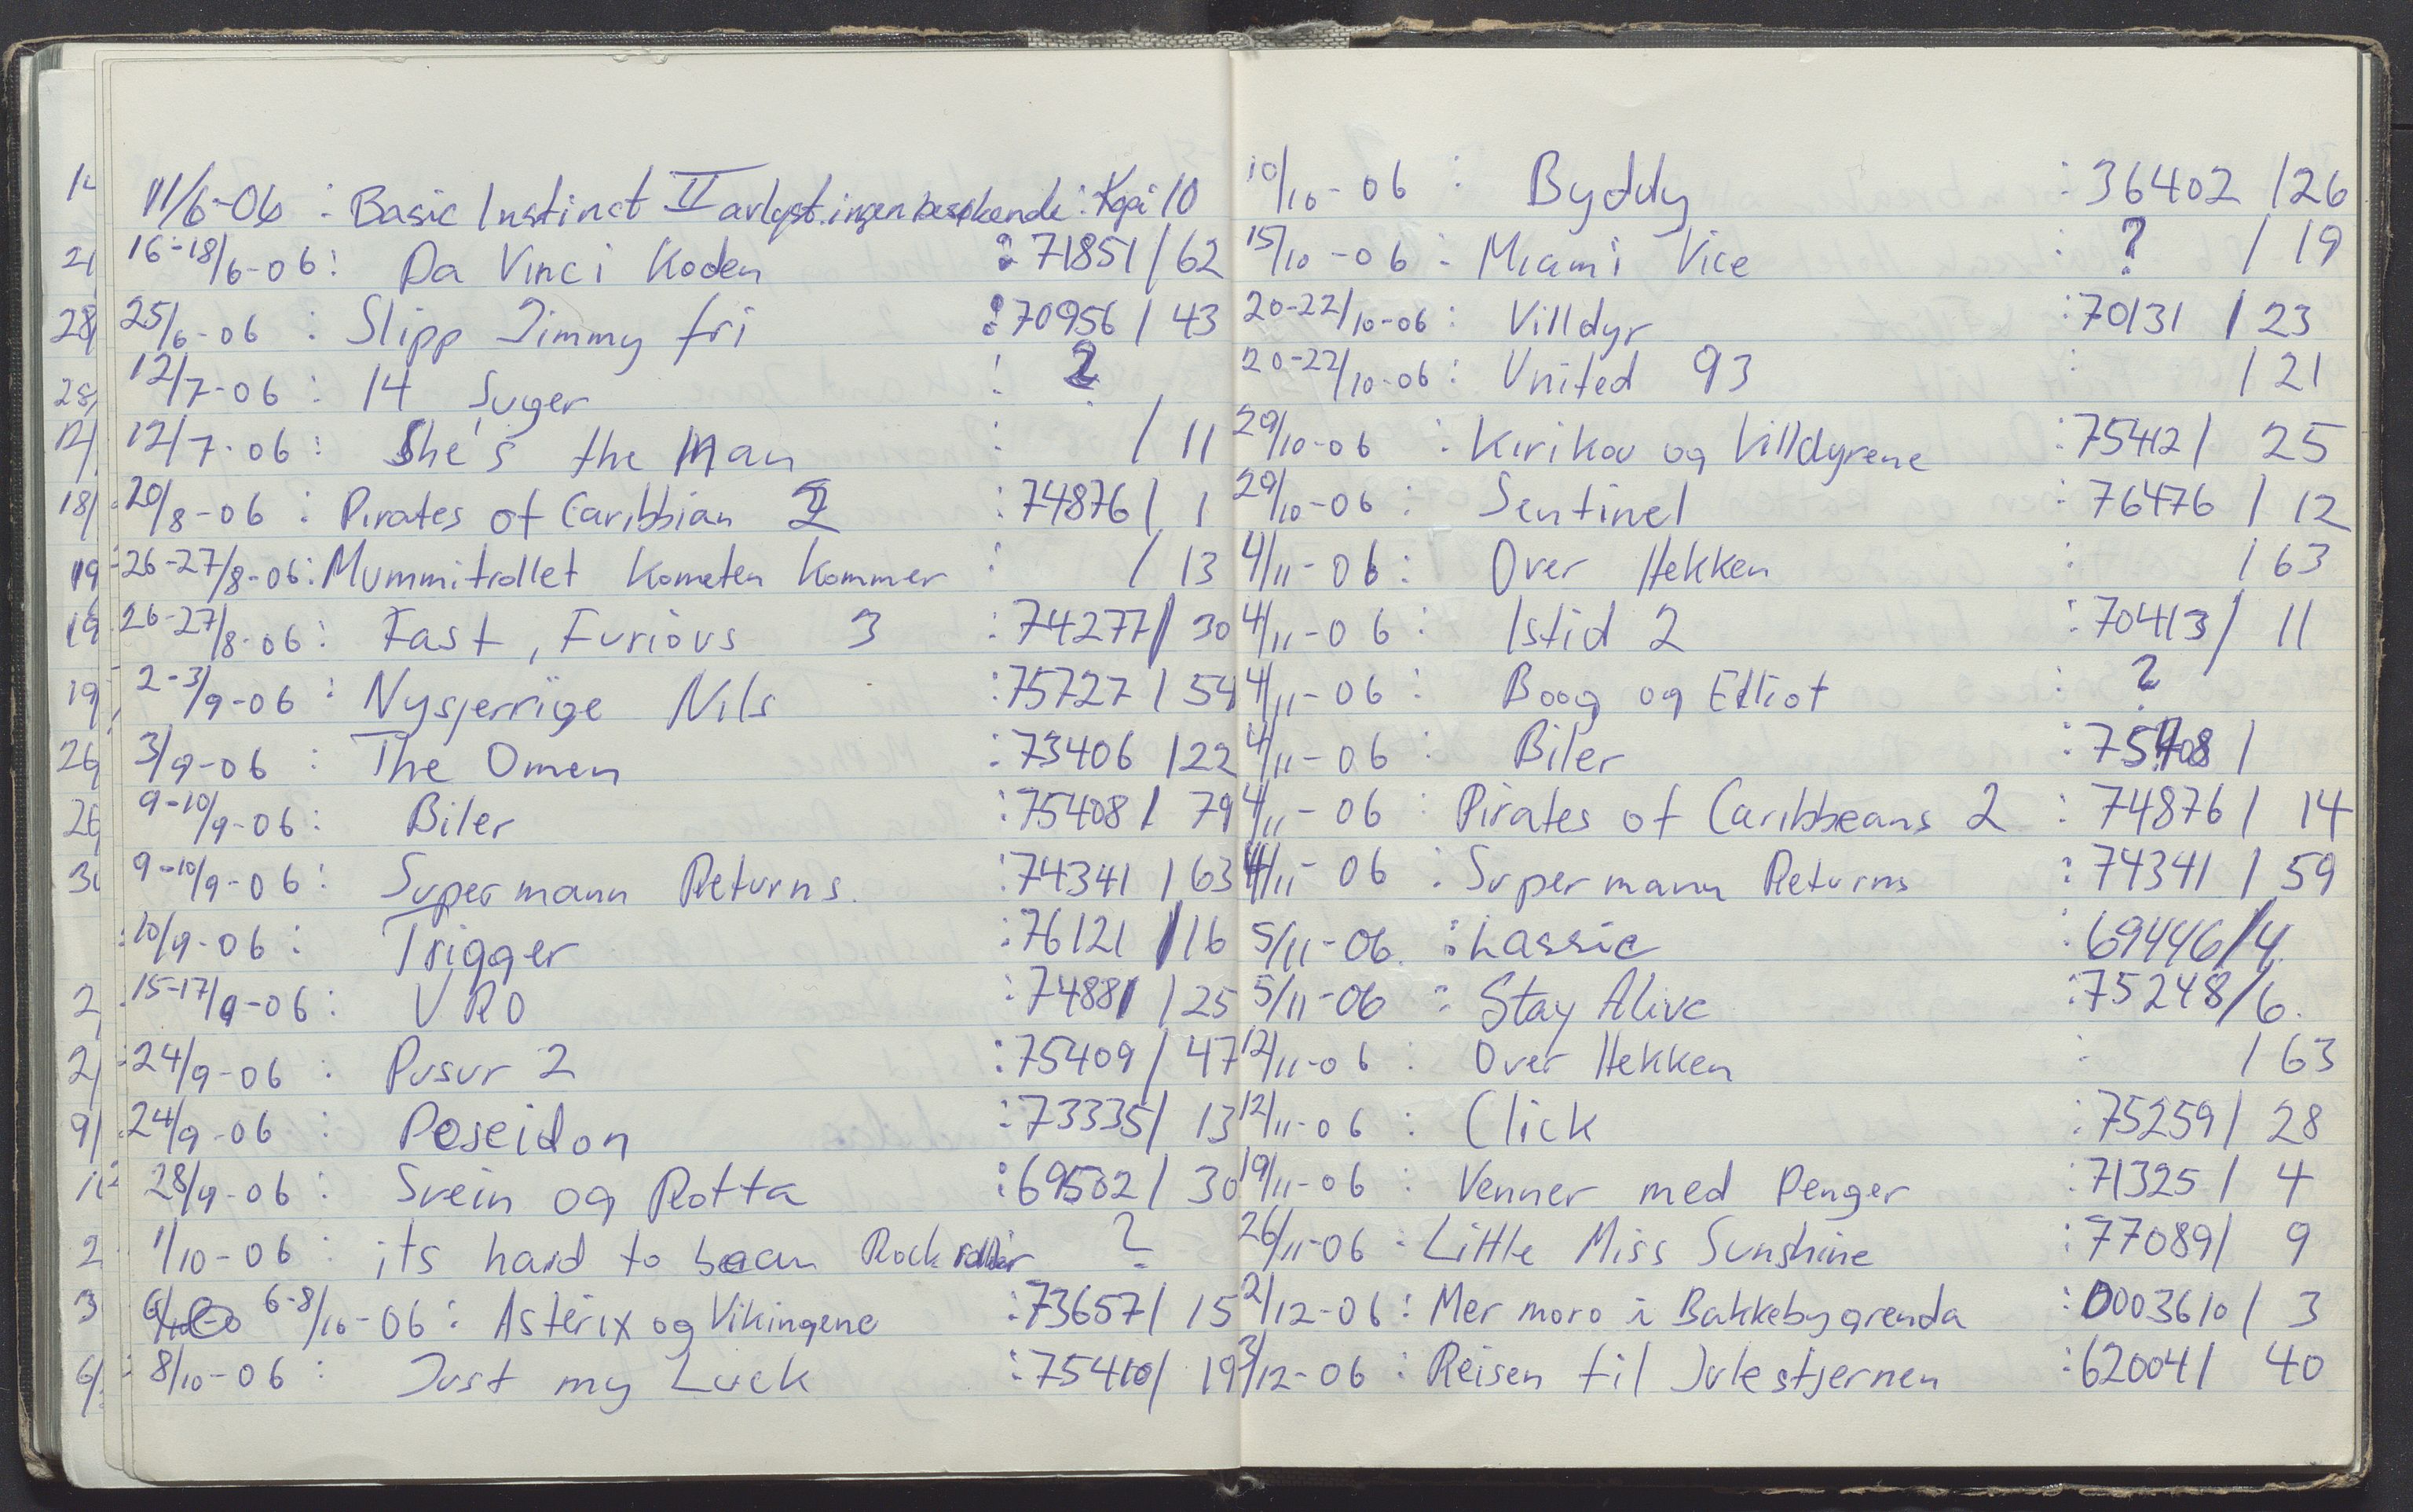 11/6-06 : Basic Instinct II avlyst.ingen besøkende : Kopi 10
16-18/6-06 : Da Vinci Koden : 71851 / 62
25/6-06 : Slipp Jimmy fri : 70956 / 43
12/7-06 : 14 Suger : ?
12/7-06 : She's the Man : / 11
20/8-06 : Pirates of Caribbian 2 : 74876 / 1
26-27/8-06 : Mummitrollet kometen kommer : / 13
26-27/8-06 : Fast, Furious 3 : 74277 / 30
2-3/9-06 : Nysjerrige Nils : 75727 / 54
3/9-06 : The Omen : 73406 / 22
9-10/9-06 : Biler : 75408 / 79
9-10/9-06 : Supermann Returns. : 74341 / 63
10/9-06 : Trigger : 76121 / 16
15-17/9-06 : URO : 74881 / 25
24/9-06 : Pusur 2 : 75409 / 47
24/9-06 : Poseidon : 73335 / 13
28/9-06 : Svein og Rotta : 69502 / 30
1/10-06 : its hard to be an Rock ?
6-8/10-06 : Asterix og Vikingene : 73657 / 15
8/10-06 : Just my Luck : 75410 / 19
10/10-06 : Byddy : 36402 / 26
15/10-06 : Miami Vice : ? / 19
20-22/10-06 : Villdyr : 70131 / 23
20-22/10-06 : United 93 : / 21
29/10-06 : Kirikou og Villdyrene : 75412 / 25
29/10-06 : Sentinel : 76476 / 12
4/11-06 : Over Hekken : / 63
4/11-06 : Istid 2 : 70413 / 11
4/11-06 : Boog og Elliot : ?
4/11-06 : Biler : 75408 /
4/11-06 : Pirates of Caribbeans 2 : 74876 / 14
4/11-06 : Supermann Returns : 74341 / 59
5/11-06. : Lassie : 69446/4.
5/11-06 : Stay Alive : 75248/6.
12/11-06 : Over Hekken : / 63
12/11-06 : Click : 75259 / 28
19/11-06 : Venner med Penger : 71325 / 4
26/11-06 : Little Miss Sunshine : 77089 / 9
2/12-06 : Mer moro i Bakkebygrenda : 0003610 / 3
3/12-06 : Reisen til Julestjernen : 62004 / 40